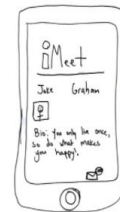 iMeet
Jake Graham
Bio: you only live once,
so do what makes
you happy!